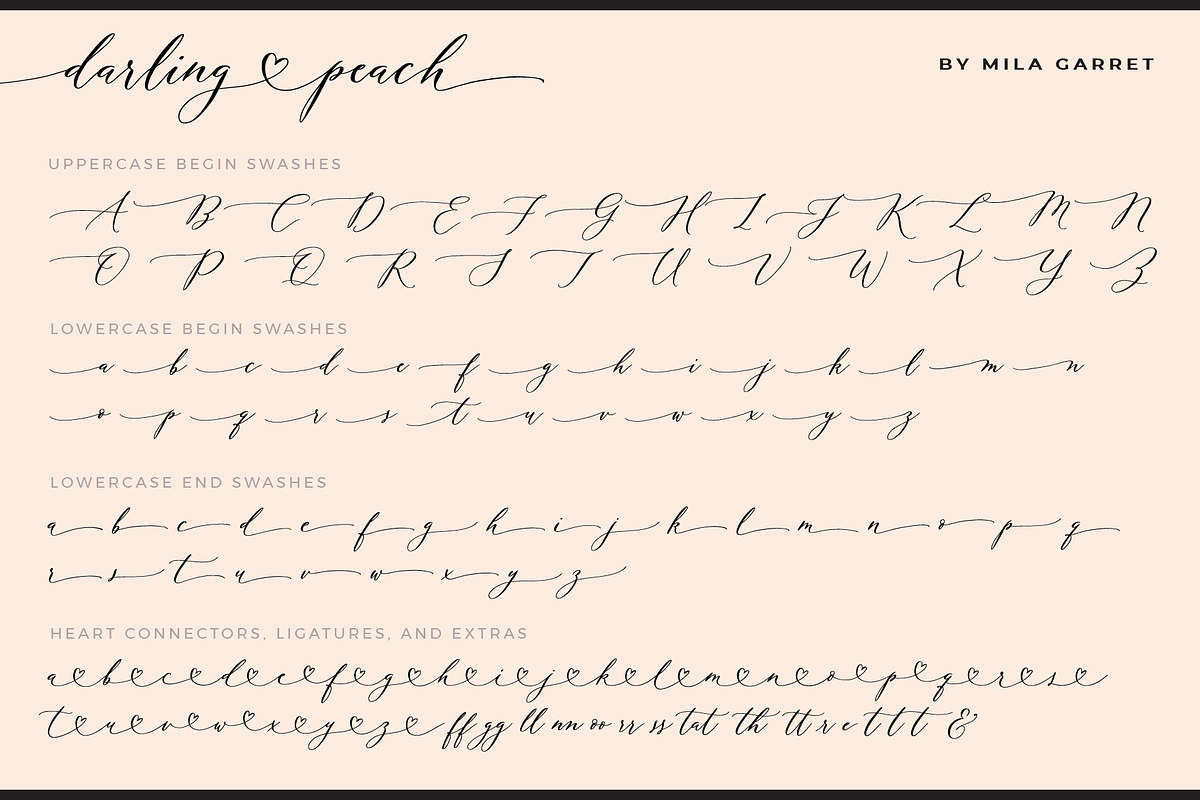 darling ♡ peach
BY MILA GARRET
UPPERCASE BEGIN SWASHES
A B C D E F G H I J K L M N
O P Q R S T U V W X Y Z
LOWERCASE BEGIN SWASHES
a b c d e f g h i j k l m n
o p q r s t u v w x y z
LOWERCASE END SWASHES
a b c d e f g h i j k l m n o p q
r s t u v w x y z
HEART CONNECTORS, LIGATURES, AND EXTRAS
a♡b♡c♡d♡e♡f♡g♡h♡i♡j♡k♡l♡m♡n♡o♡p♡q♡r♡s♡
t♡u♡v♡w♡x♡y♡z♡ ff gg ll nn oo rr ss tat th tt r e t t t &